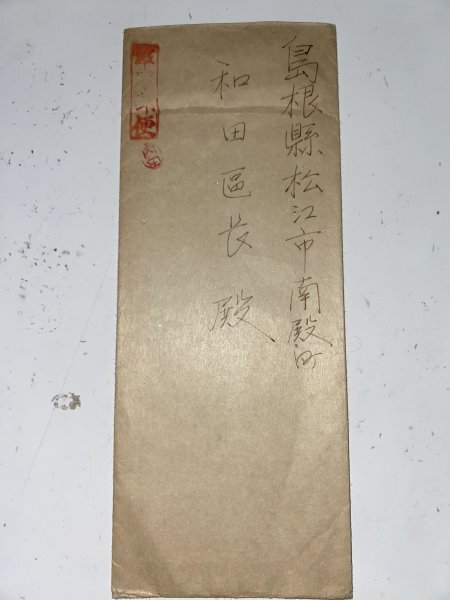 島根縣松江市南殿町
和田區長殿
軍事郵便